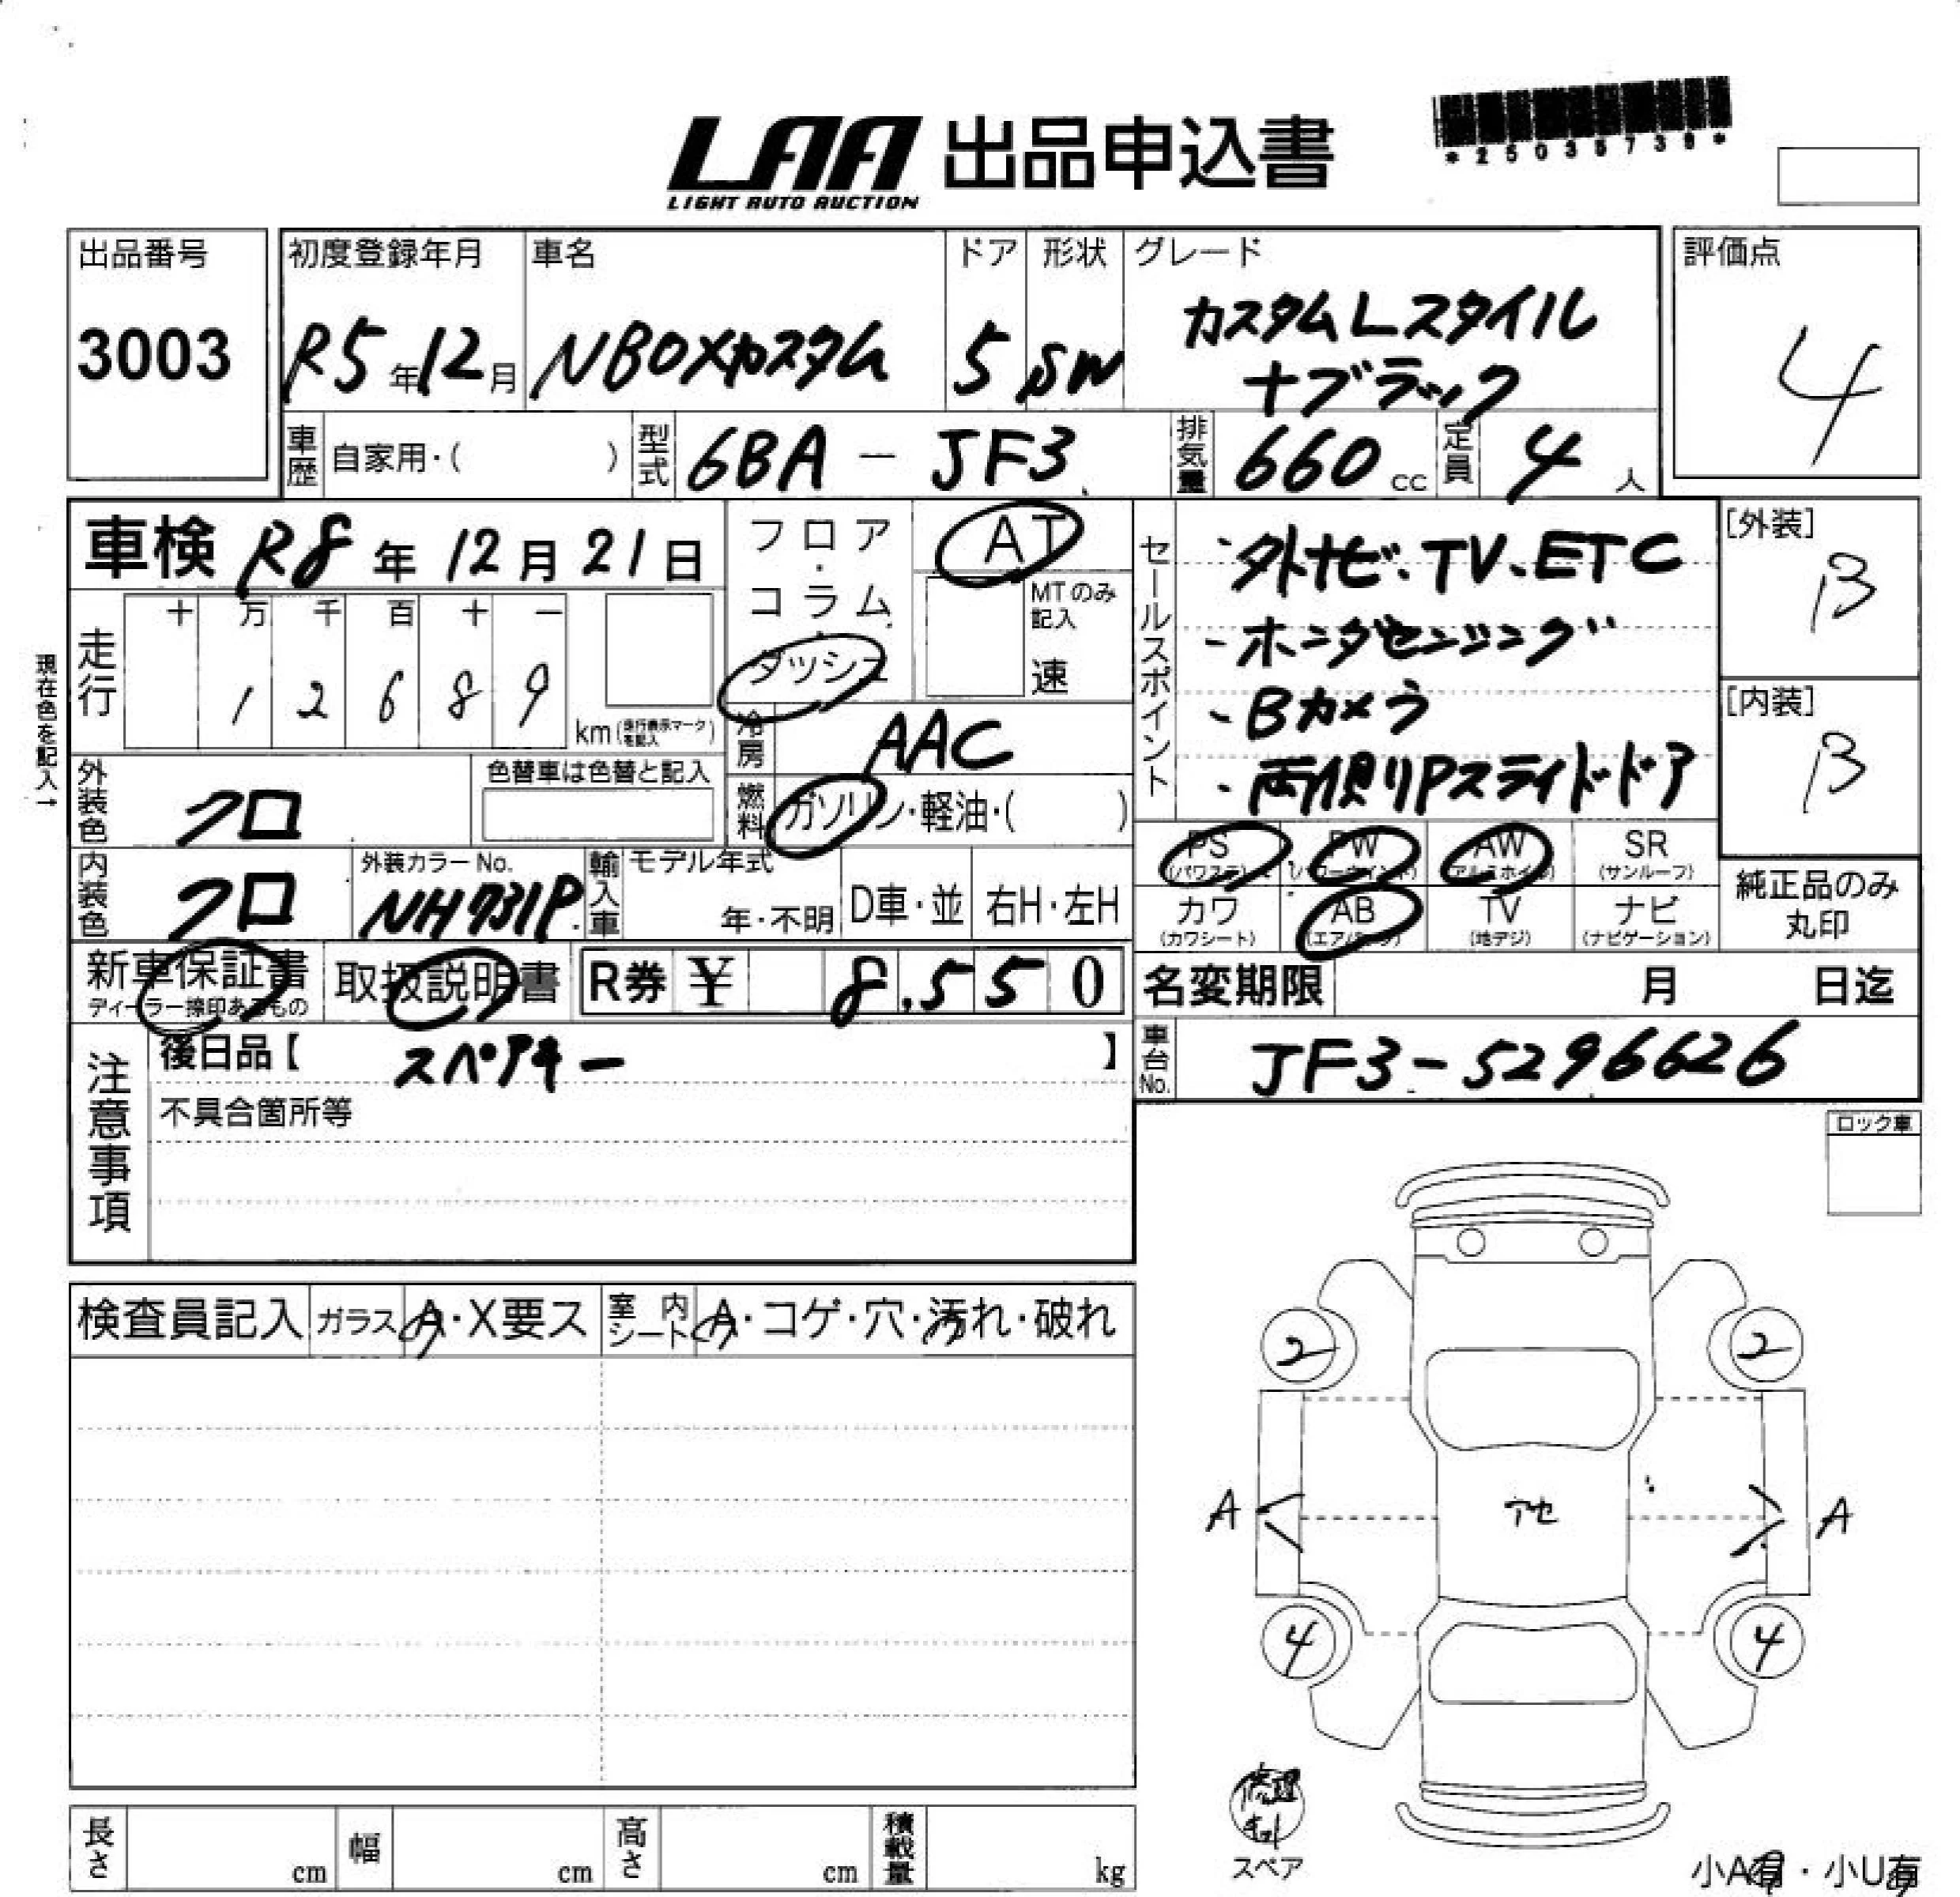 LAA 出品申込書
LIGHT AUTO AUCTION
出品番号
3003
初度登録年月
R5年12月
車名
NBOXカスタム
ドア
5
形状
SW
グレード
カスタムLスタイル
+ブラック
評価点
4
車歴 自家用・( )
型式 6BA - JF3
排気量 660 cc
定員 4 人
車検 R8年12月21日
現在色を記入→
走行
十 万 千 百 十 一
1 2 6 8 9
km(走行表示マークを記入)
フロア・コラム・ダッシュ
AT
MTのみ記入
速
冷房 AAC
燃料 ガソリン・軽油・( )
外装色 クロ
色替車は色替と記入
内装色 クロ
外装カラーNo.
NH731P
輸入車
モデル年式
年・不明
D車・並
右H・左H
セールスポイント
・外ナビ、TV、ETC
・ホンダセンシング
・Bカメラ
・両側Pスライドドア
[外装]
B
[内装]
B
PS (パワステ)
PW (パワーウインド)
AW (アルミホイル)
SR (サンルーフ)
カワ (カワシート)
AB (エアバッグ)
TV (地デジ)
ナビ (ナビゲーション)
純正品のみ
丸印
新車保証書
取扱説明書
R券 ¥ 8,550
名変期限 月 日迄
車台No. JF3-5296626
注意事項
後日品【 スペアキー 】
不具合箇所等
ロック車
検査員記入
ガラス A・X要ス
室内シート A・コゲ・穴・汚れ・破れ
2 2
A アセ A
4 4
修理
キット
スペア
長さ cm
幅 cm
高さ cm
積載量 kg
小A有・小U有